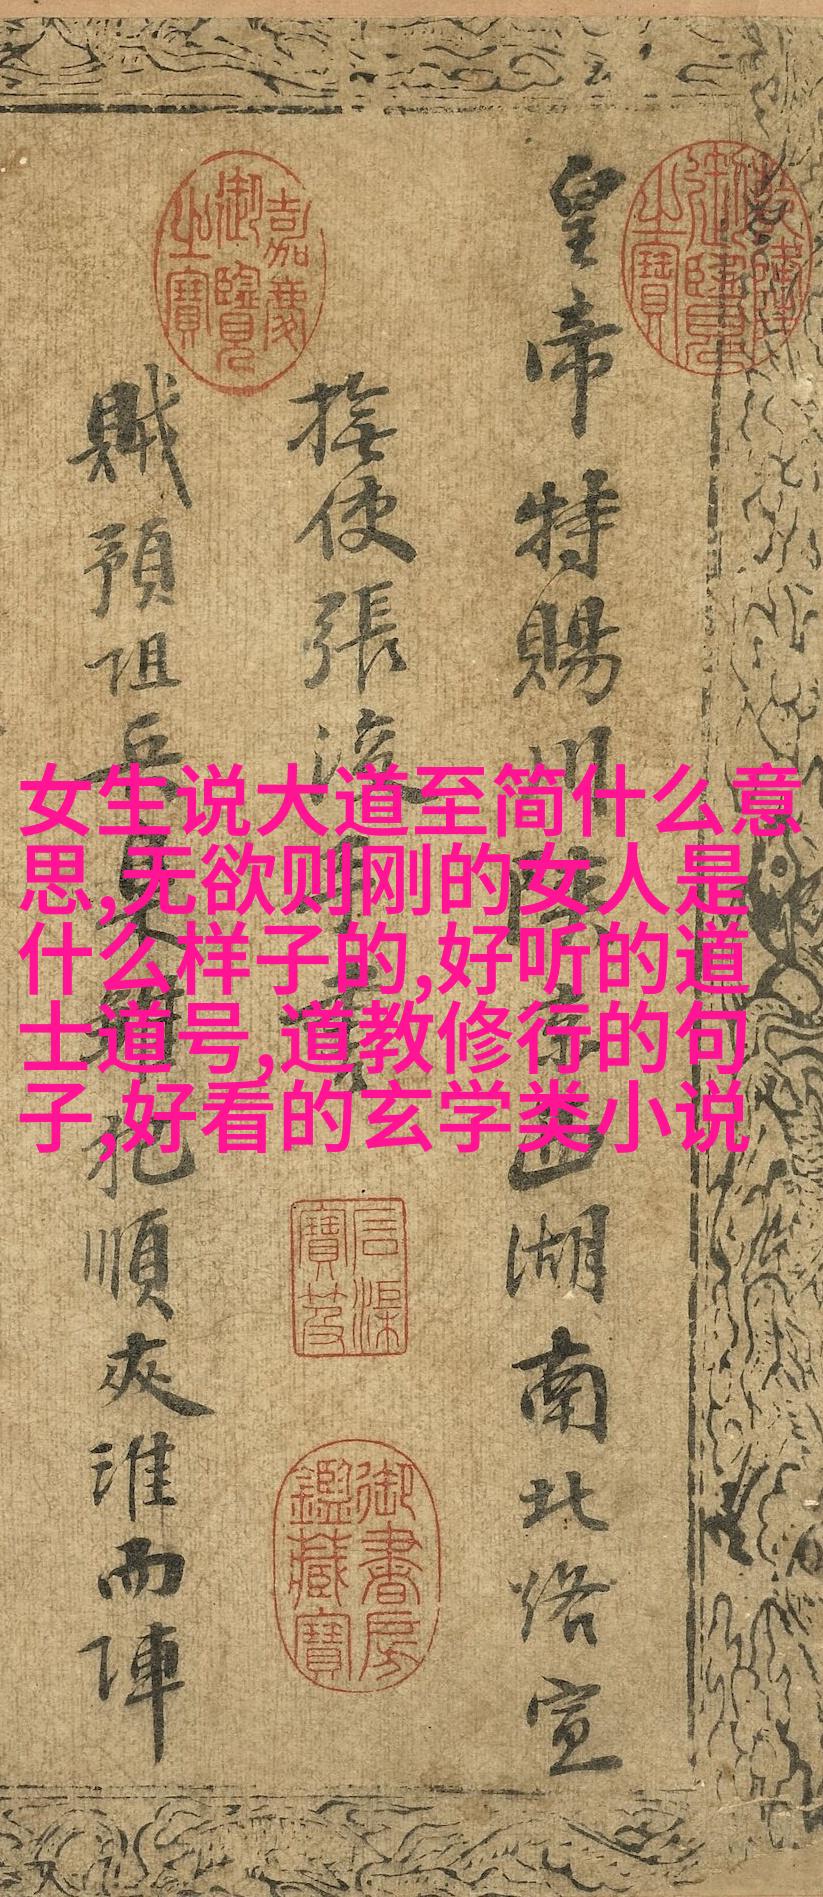 皇帝特賜川陝京西湖南北路宣
撫使張浚手書
賊預阻兵梟雛犯順夾淮而陣
乾隆御覽之寶
嘉慶御覽之寶
石渠寶笈
御書房鑑藏寶
女生说大道至简什么意
思,无欲则刚的女人是
什么样子的,好听的道
士道号,道教修行的句
子,好看的玄学类小说